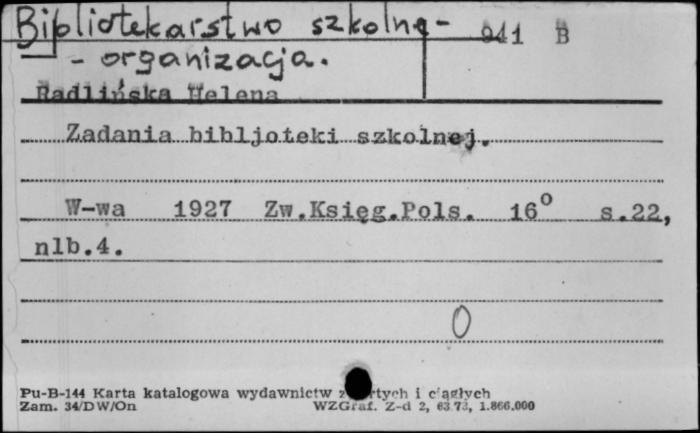 Bibliotekarstwo szkolne- 941 B
- organizacja.
Radlińska Helena
Zadania bibljoteki szkolnej.
W-wa 1927 Zw.Księg.Pols. 16° s.22,
nlb.4.
0
Pu-B-144 Karta katalogowa wydawnictw i ciągłych
Zam. 34/DW/On WZGraf. Z-d 2, 63.73, 1.866.000